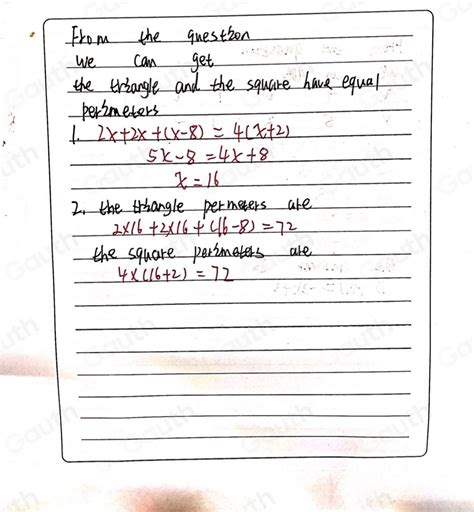 From the question
we can get
the triangle and the square have equal
perimeters
1. 2x+2x+(x-8) = 4(x+2)
5x-8 = 4x+8
x=16
2. the triangle permeters are
2x16+2x16+(16-8)=72
the square perimeters are
4x(16+2) = 72
Gauth